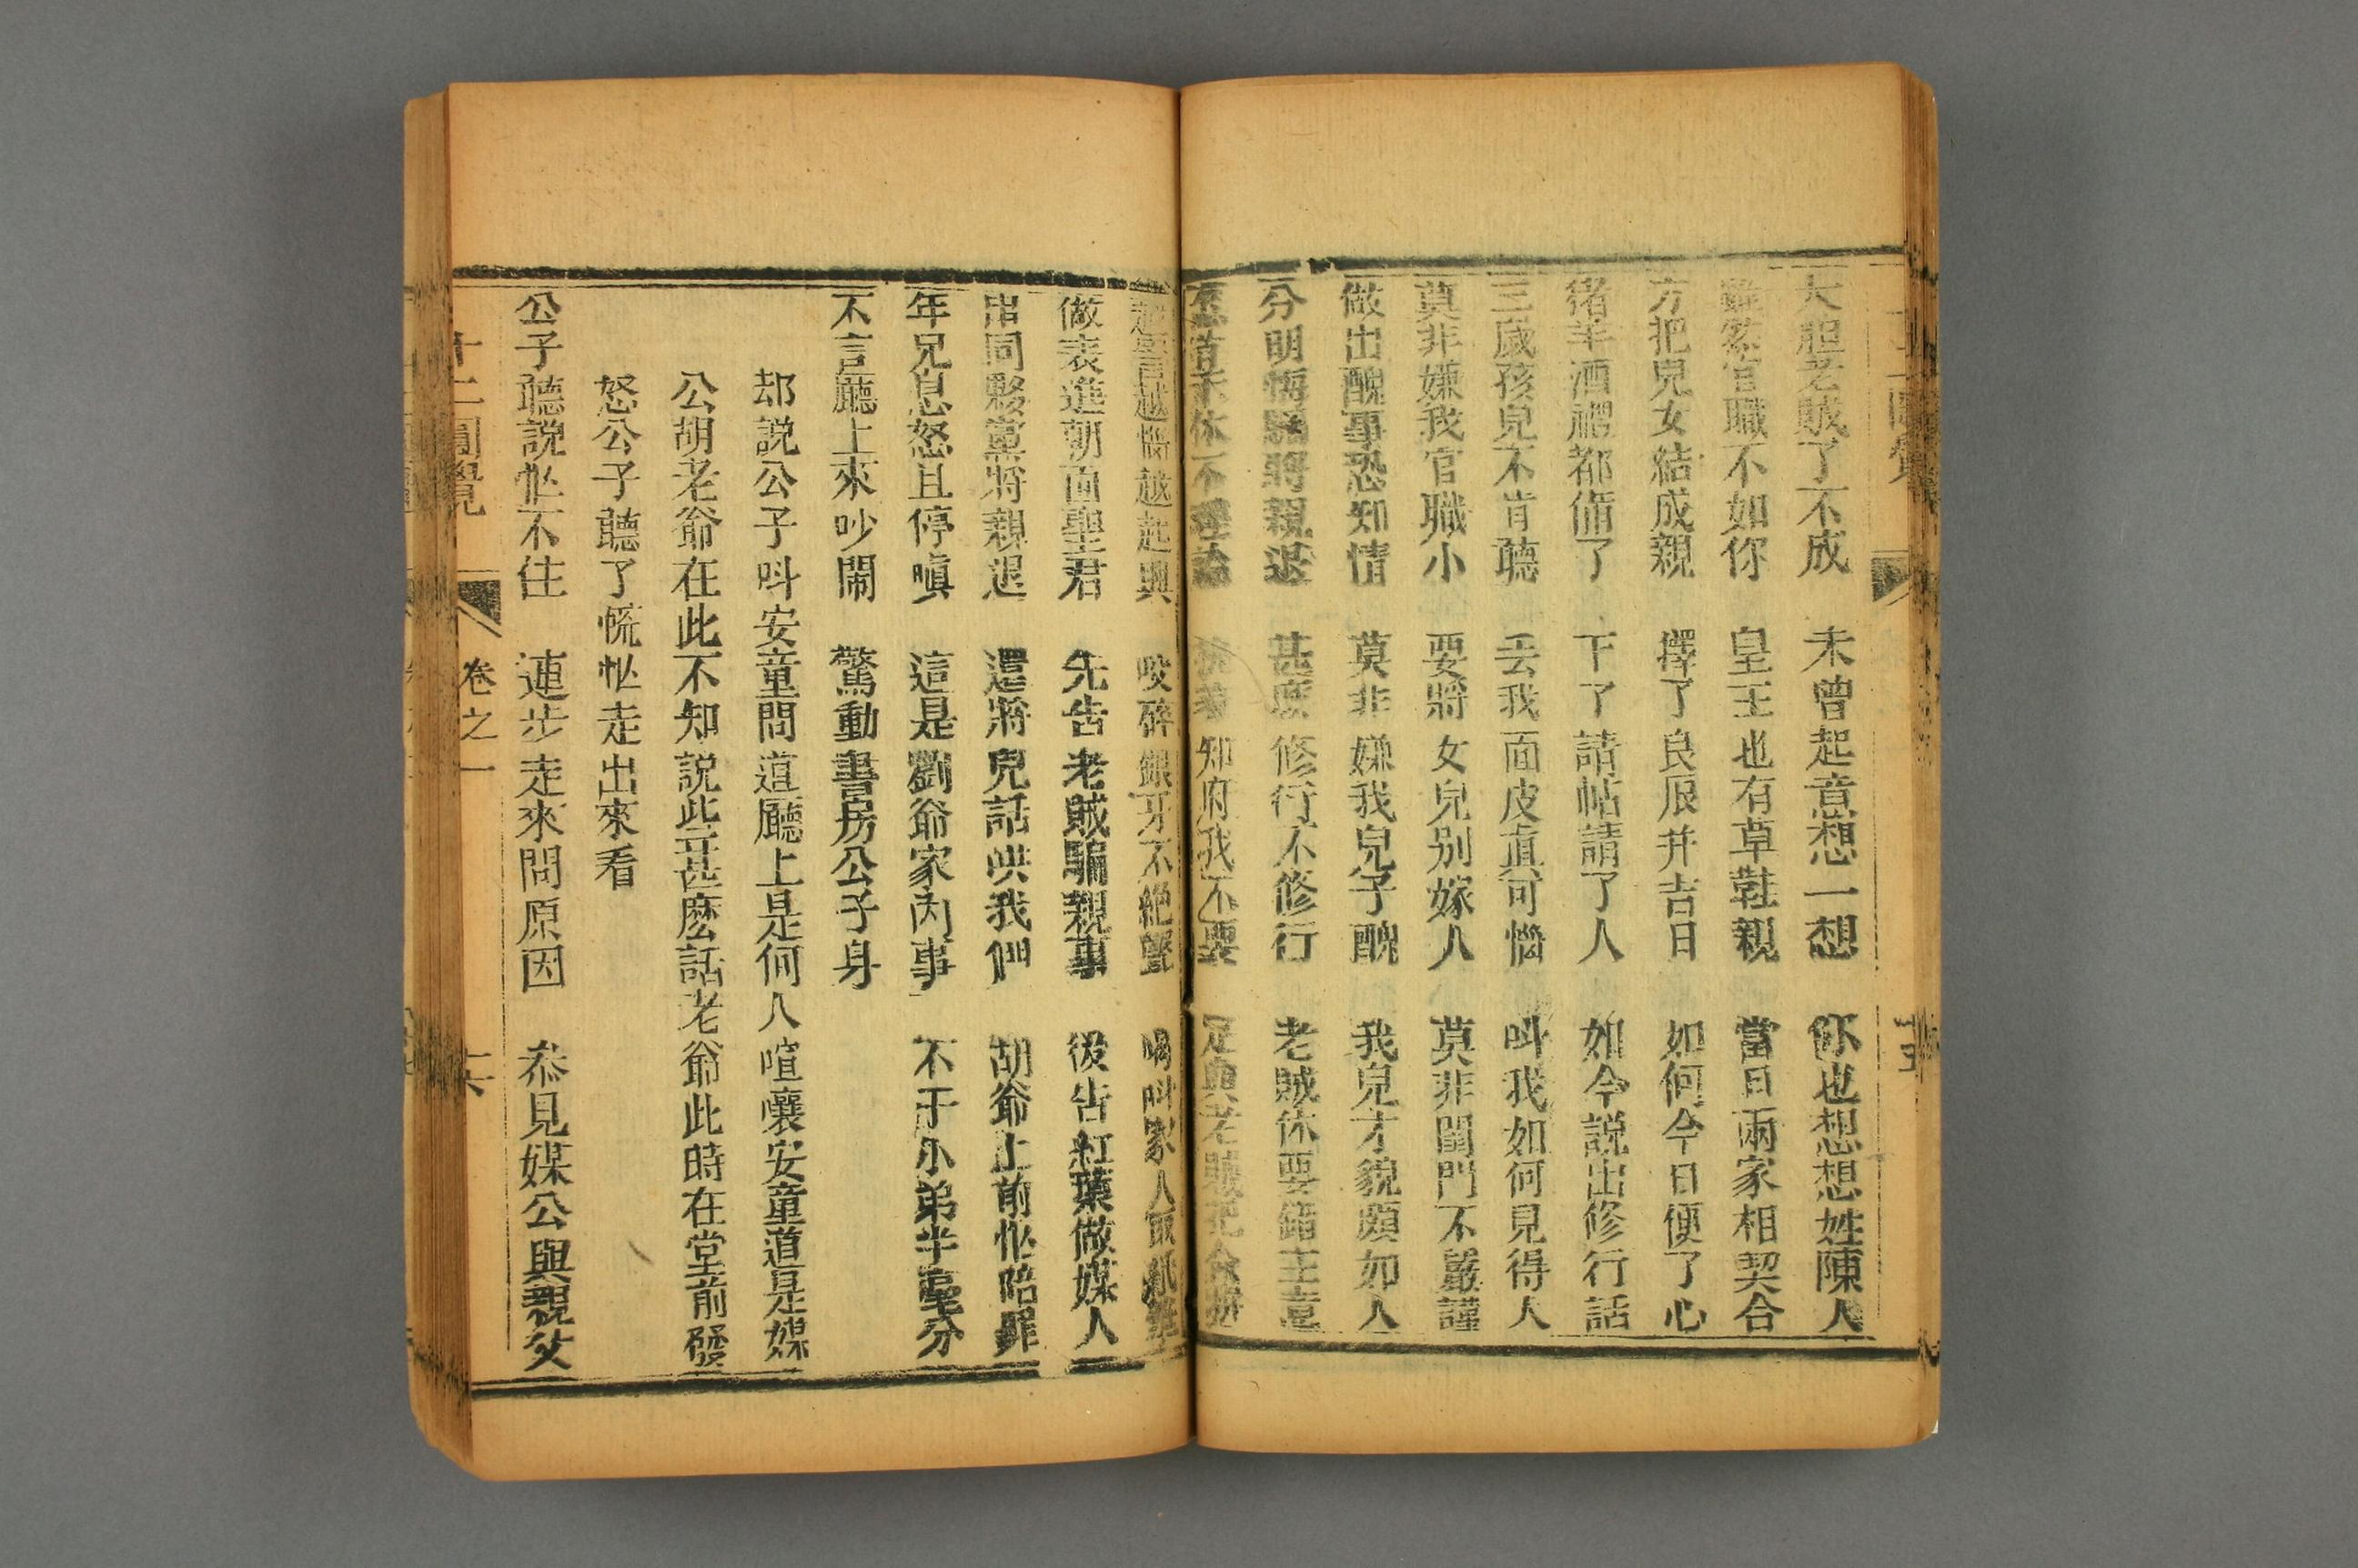 大胆老賊了不成 未曾起意想一想 你也想想姓陳人
雖然官職不如你 皇王也有草鞋親 當日兩家相契合
方把兒女結成親 擇了良辰并吉日 如何今日便了心
猪羊酒禮都俻了 下了請帖請了人 如今説出修行話
三歲孩兒不肯聽 丢我面皮真可惱 呌我如何見得人
莫非嫌我官職小 要將女兒别嫁人 莫非閨門不嚴謹
做出醜事恐知情 莫非嫌我兒子醜 我兒才貌頗如人
分明悔賴將親退 甚麽修行不修行 老賊休要錯主意
知府我不要
越罵越惱越起興 咬碎銀牙不絶聲 喝呌家人取紙筆
做表進朝面聖君 先告老賊騙親事 後告紅葉做媒人
串同夥黨將親退 還將兒話哄我們 胡爺上前忙陪罪
年兄息怒且停嗔 這是劉爺家内事 不干小弟半毫分
不言廳上來吵鬧 驚動書房公子身
却説公子呌安童問道廳上是何人喧嚷安童道是媒
公胡老爺在此不知説些甚麽話老爺此時在堂前發
怒公子聽了慌忙走出來看
公子聽説忙不住 連步走來問原因 忝見媒公與親父
十二圓覺 卷之一 十六